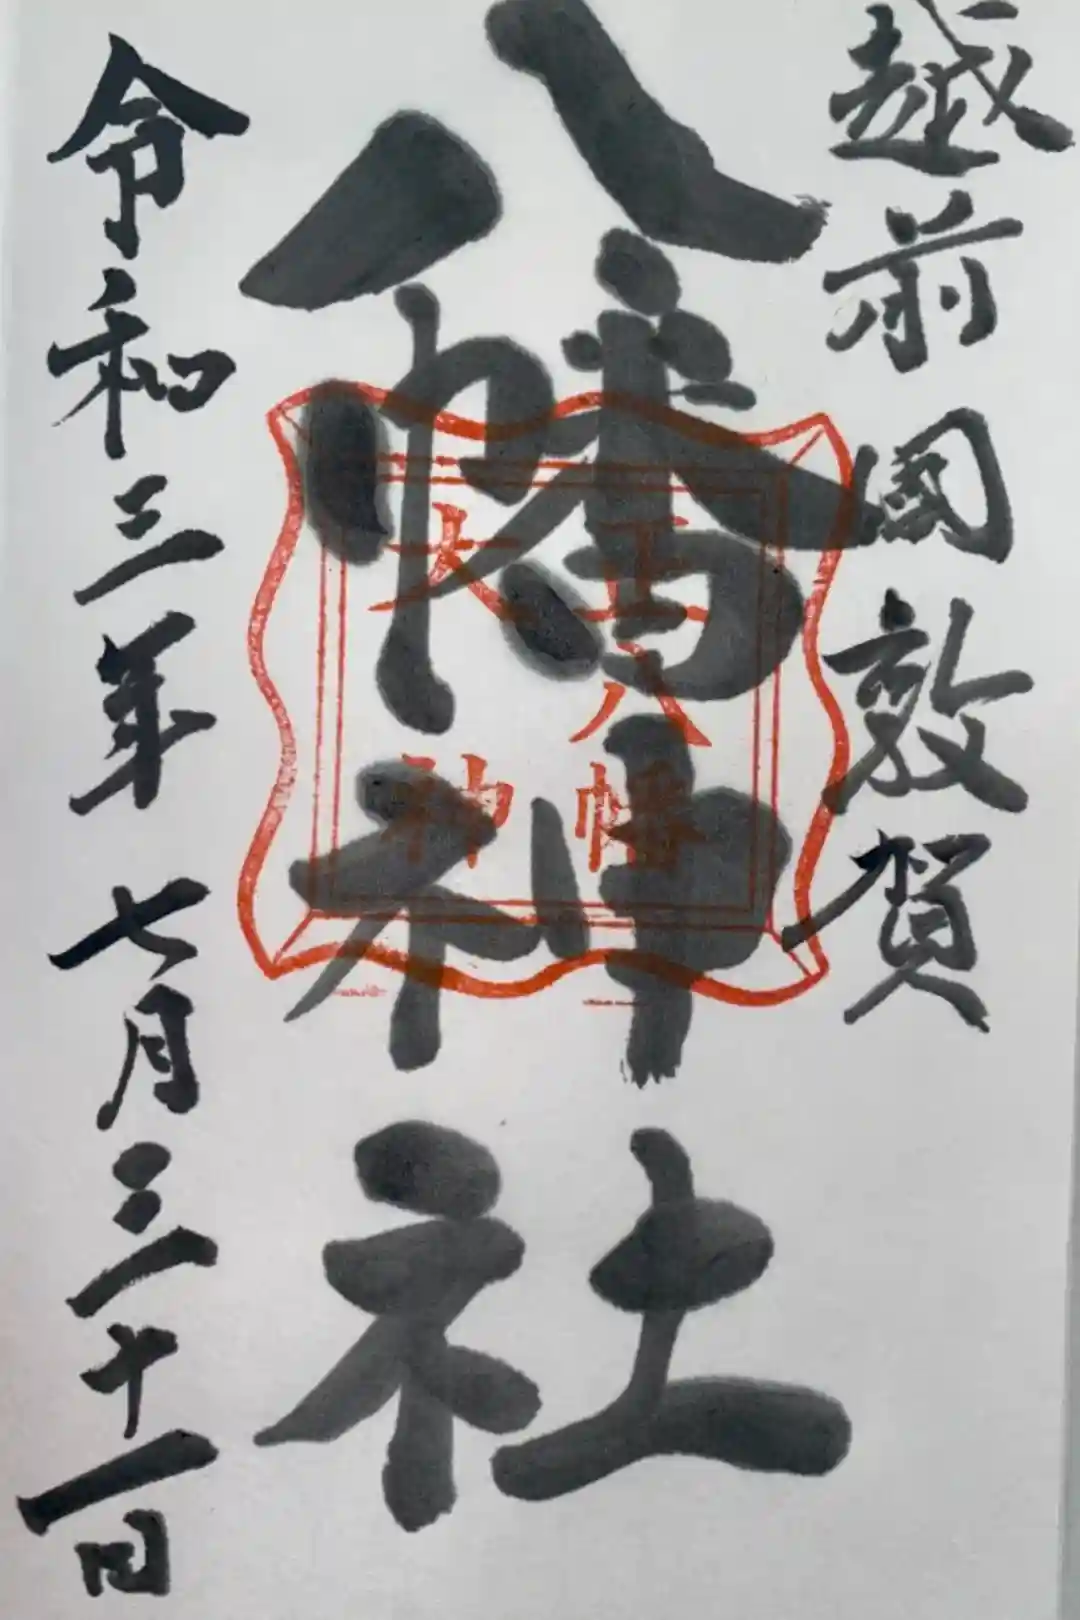 越前國敦賀
八幡神社
正八幡
大神
令和三年七月三十一日